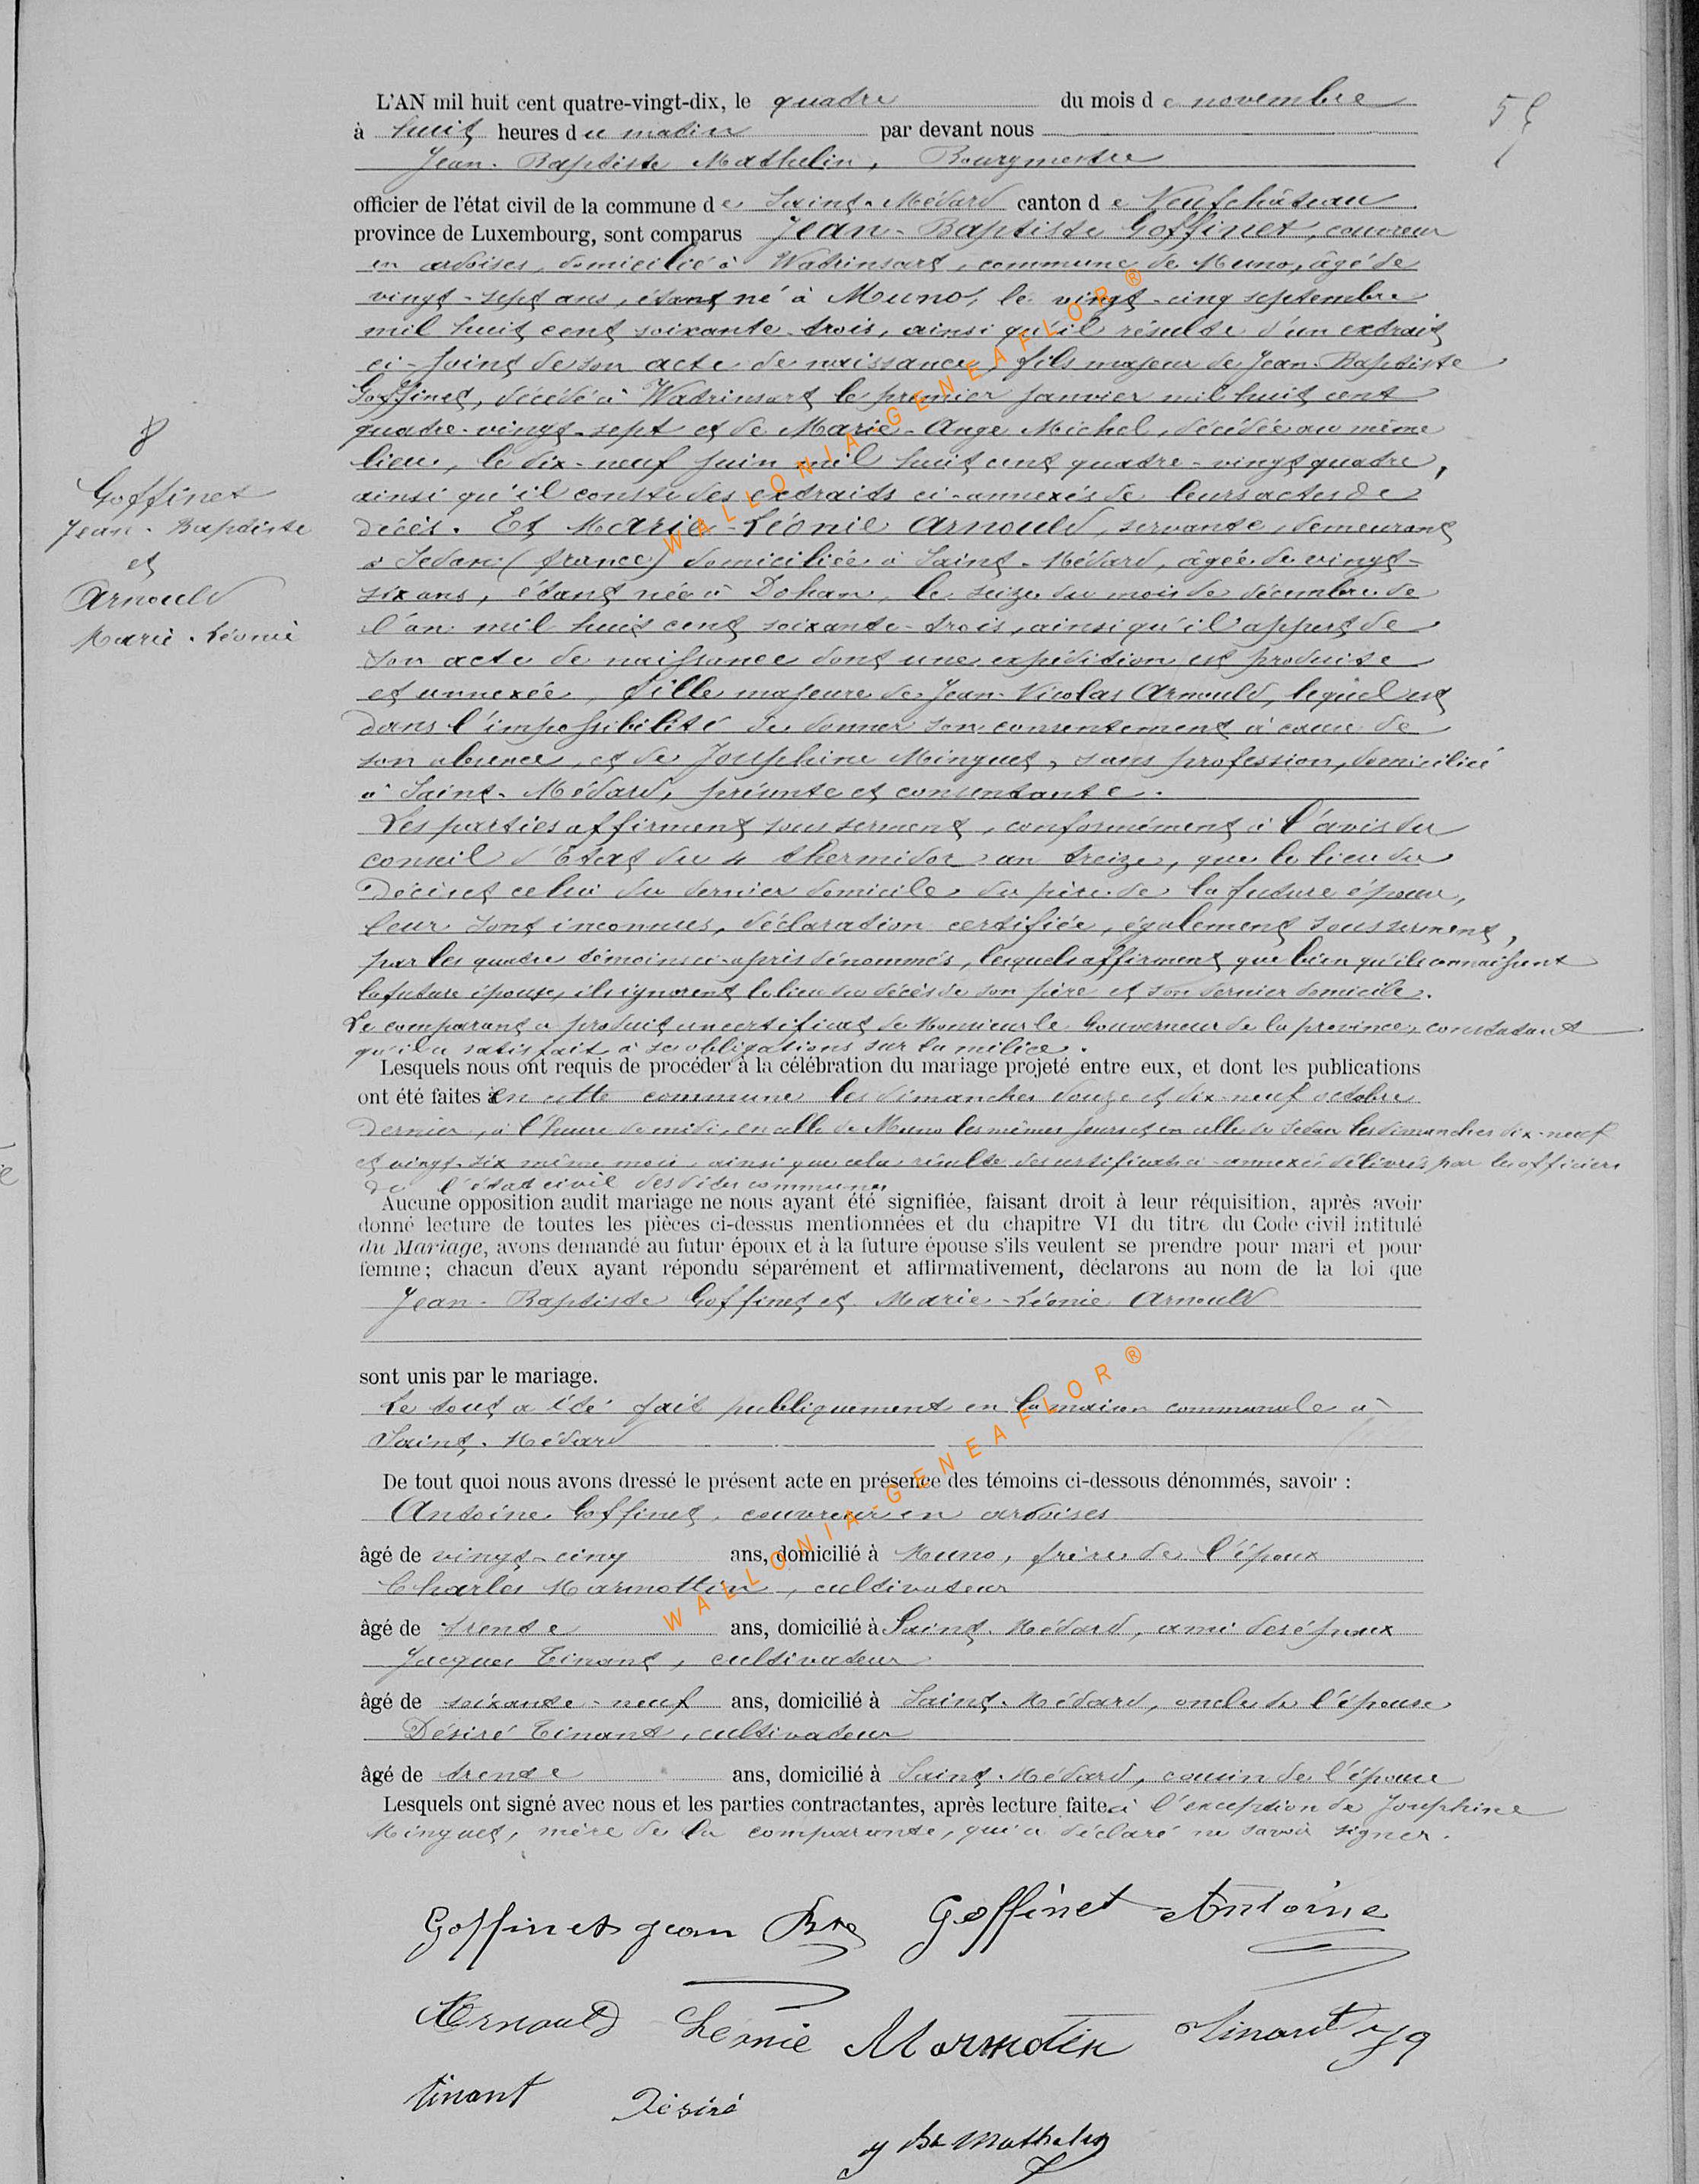 L'AN mil huit cent quatre-vingt-dix, le quatre du mois de novembre
55
à huit heures du matin par devant nous
Jean-Baptiste Mathelin, Bourgmestre
officier de l'état civil de la commune de Saint-Médard canton de Neufchâteau
province de Luxembourg, sont comparus Jean-Baptiste Goffinet, couvreur
en ardoises, domicilié à Watrinsart, commune de Muno, âgé de
vingt-sept ans, étant né à Muno, le vingt-cinq septembre
mil huit cent soixante-trois, ainsi qu'il résulte d'un extrait
ci-joint de son acte de naissance, fils majeur de Jean-Baptiste
Goffinet, décédé à Watrinsart le premier janvier mil huit cent
quatre-vingt-sept et de Marie-Ange Michel, décédée au même
lieu, le dix-neuf juin mil huit cent quatre-vingt quatre,
ainsi qu'il conste des extraits ci-annexés de leurs actes de
décès. Et Marie-Léonie Arnould, servante, demeurant
à Sedan (france) domiciliée à Saint-Médard, âgée de vingt-
six ans, étant née à Dohan, le seize du mois de décembre de
l'an mil huit cent soixante-trois, ainsi qu'il appert de
son acte de naissance dont une expédition est produite
et annexée, fille majeure de Jean-Nicolas Arnould, lequel est
dans l'impossibilité de donner son consentement à cause de
son absence, et de Josephine Minguet, sans profession, domiciliée
à Saint-Médard, présente et consentante.
Les parties affirment sous serment, conformément à l'avis du
conseil d'Etat du 4 thermidor an treize, que le lieu du
Décès et celui du dernier domicile du père de la future épouse,
leur sont inconnus, déclaration certifiée, également sous serment,
par les quatre témoins ci-après dénommés, lesquels affirment que bien qu'ils connaissent
la future épouse, ils ignorent le lieu du décès de son père et son dernier domicile.
Le comparant a produit un certificat de Monsieur le Gouverneur de la province, constatant
qu'il a satisfait à ses obligations sur la milice.
Lesquels nous ont requis de procéder à la célébration du mariage projeté entre eux, et dont les publications
ont été faites en cette commune les dimanches douze et dix-neuf octobre
Dernier, à l'heure de midi, en celle de Muno les mêmes jours et en celle de Sedan les dimanches dix-neuf
et vingt-six même mois, ainsi que cela résulte des certificats ci-annexés délivrés par les officiers
de l'état civil des dites communes
Aucune opposition audit mariage ne nous ayant été signifiée, faisant droit à leur réquisition, après avoir
donné lecture de toutes les pièces ci-dessus mentionnées et du chapitre VI du titre du Code civil intitulé
du Mariage, avons demandé au futur époux et à la future épouse s'ils veulent se prendre pour mari et pour
femme; chacun d'eux ayant répondu séparément et affirmativement, déclarons au nom de la loi que
Jean-Baptiste Goffinet et Marie-Léonie Arnould
sont unis par le mariage.
Le tout a été fait publiquement en la maison communale à
Saint-Médard
De tout quoi nous avons dressé le présent acte en présence des témoins ci-dessous dénommés, savoir :
Antoine Goffinet, couvreur en ardoises
âgé de vingt-cinq ans, domicilié à Muno, frère de l'époux
Charles Marmottin, cultivateur
âgé de trente ans, domicilié à Saint-Médard, ami des époux
Jacques Tinant, cultivateur
âgé de soixante-neuf ans, domicilié à Saint-Médard, oncle de l'épouse
Désiré Tinant, cultivateur
âgé de trente ans, domicilié à Saint-Médard, cousin de l'épouse
Lesquels ont signé avec nous et les parties contractantes, après lecture faite à l'exception de Josephine
Minguet, mère de la comparante, qui a déclaré ne savoir signer.
8
Goffinet
Jean-Baptiste
et
Arnould
Marie-Léonie
Goffinet jean Bte Goffinet Antoine
Arnould Léonie Marmotin Tinant
tinant Désiré
J Bte Mathelin
WALLONIA-GENEAFLOR®
WALLONIA-GENEAFLOR®